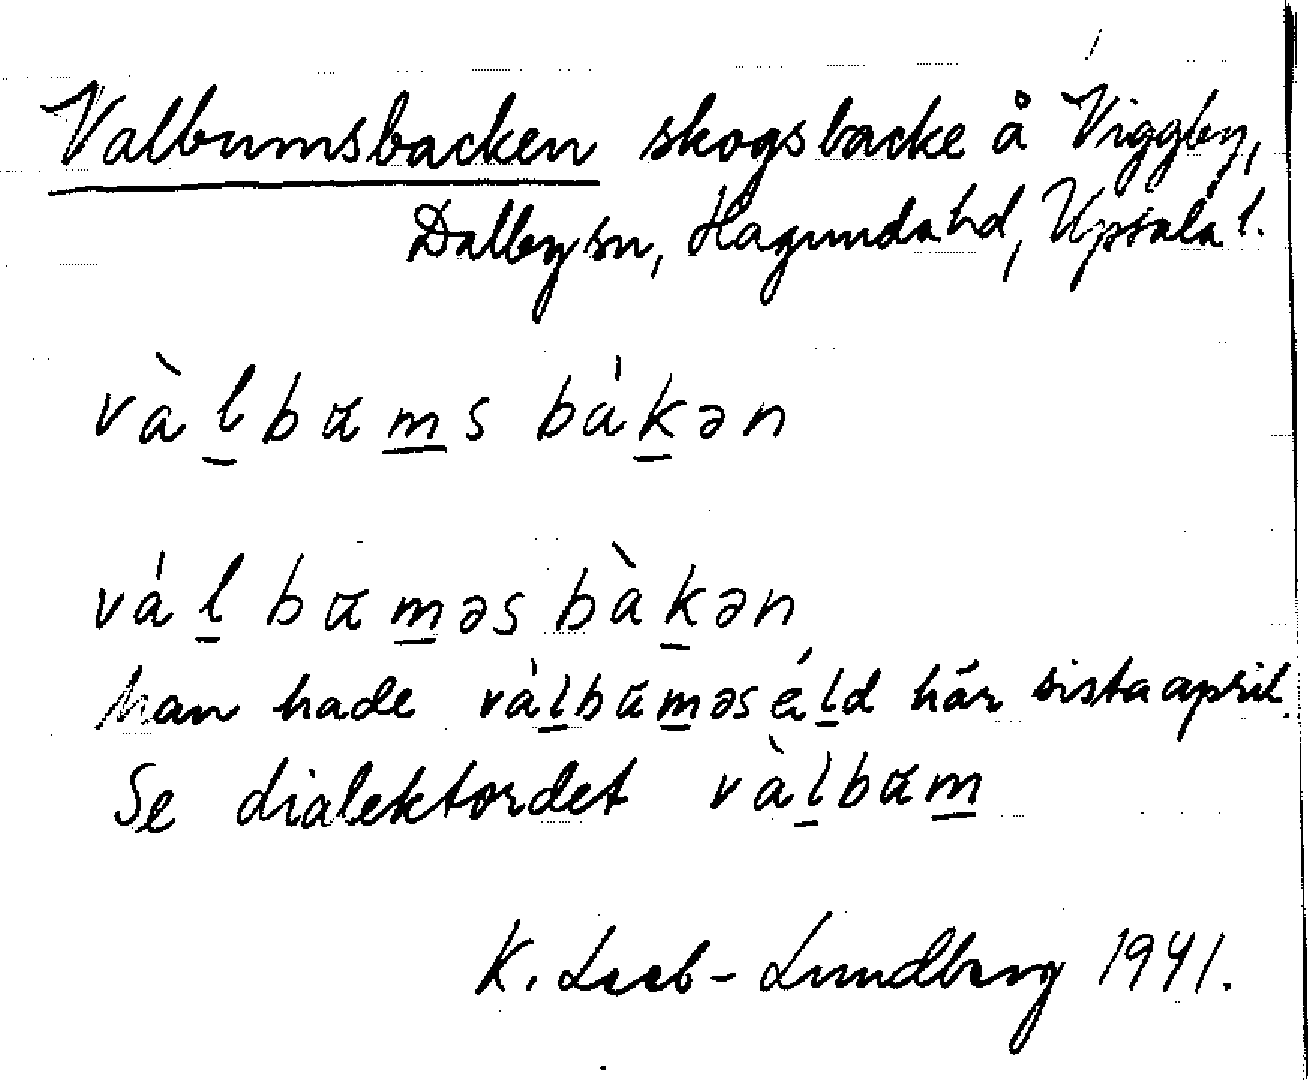 Valbumsbacken skogsbacke å Viggby,
Dalby sn, Hagunda hd, Upsala l.
vàl̲bɯm̲s bák̲ən
vál̲bɯm̲əs bàk̲ən
Man hade vàl̲bɯm̲əsél̲d här sista april.
Se dialektordet vàl̲bɯm̲
K. Leeb-Lundberg 1941.